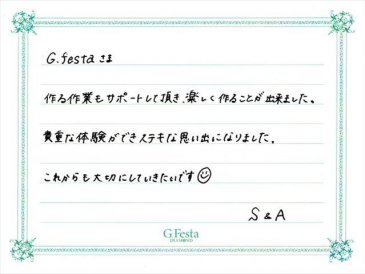 G.festa さま
作る作業もサポートして頂き、楽しく作ることが出来ました。
貴重な体験ができステキな思い出になりました。
これからも大切にしていきたいです☺
S & A
G.Festa
DIAMOND